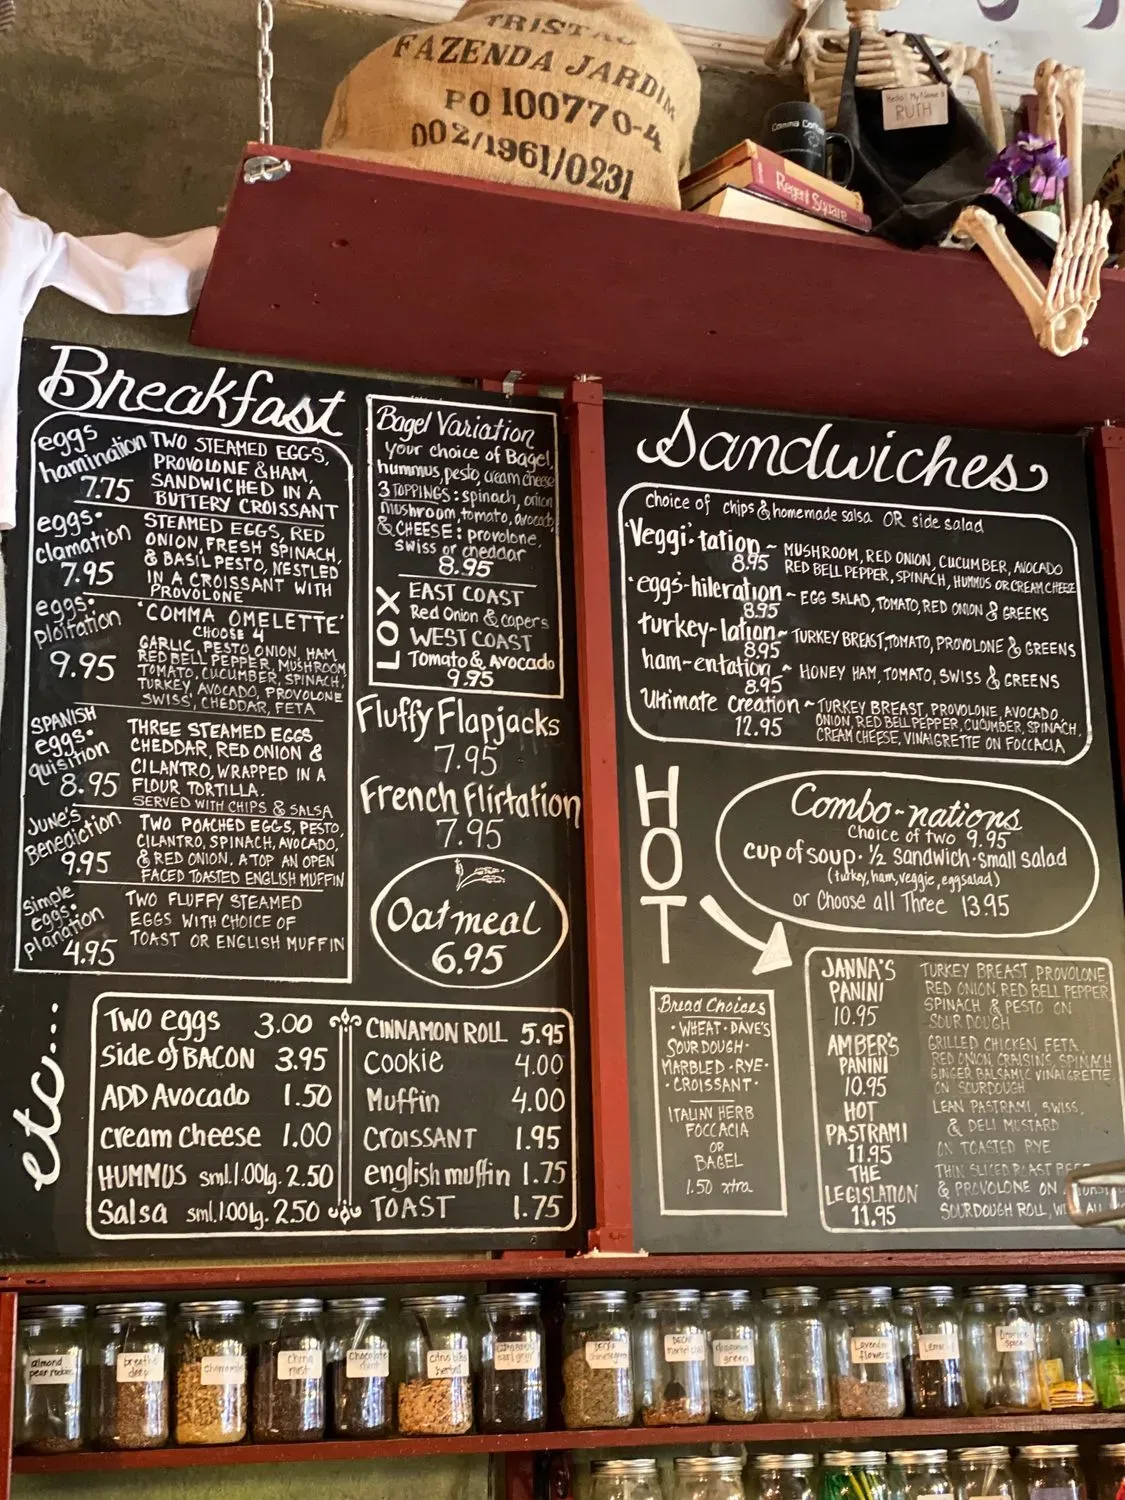 TRISTAO
FAZENDA JARDIM
PO 100770-4
002/1961/0231
Comma Coffee
Hello! My Name is
RUTH
Regent Square
Breakfast
eggs
hamination
7.75
TWO STEAMED EGGS,
PROVOLONE & HAM,
SANDWICHED IN A
BUTTERY CROISSANT
eggs·
clamation
7.95
STEAMED EGGS, RED
ONION, FRESH SPINACH,
& BASIL PESTO, NESTLED
IN A CROISSANT WITH
PROVOLONE
eggs·
ploitation
9.95
'COMMA OMELETTE'
CHOOSE 4
GARLIC, PESTO, ONION, HAM,
RED BELL PEPPER, MUSHROOM,
TOMATO, CUCUMBER, SPINACH,
TURKEY, AVOCADO, PROVOLONE
SWISS, CHEDDAR, FETA
SPANISH
eggs·
quisition
8.95
THREE STEAMED EGGS
CHEDDAR, RED ONION &
CILANTRO, WRAPPED IN A
FLOUR TORTILLA.
SERVED WITH CHIPS & SALSA
June's
Benediction
9.95
TWO POACHED EGGS, PESTO,
CILANTRO, SPINACH, AVOCADO,
& RED ONION. ATOP AN OPEN
FACED TOASTED ENGLISH MUFFIN
simple
eggs·
planation
4.95
TWO FLUFFY STEAMED
EGGS WITH CHOICE OF
TOAST OR ENGLISH MUFFIN
Bagel Variation
your choice of Bagel,
hummus, pesto, cream cheese
3 TOPPINGS: spinach, onion
mushroom, tomato, avocado
& CHEESE: provolone,
swiss or cheddar
8.95
LOX
EAST COAST
Red Onion & capers
WEST COAST
Tomato & Avocado
9.95
Fluffy Flapjacks
7.95
French Flirtation
7.95
Oatmeal
6.95
etc...
TWO eggs 3.00
Side of BACON 3.95
ADD Avocado 1.50
cream cheese 1.00
HUMMUS sml.1.00 lg. 2.50
Salsa sml.1.00 lg. 2.50
CINNAMON ROLL 5.95
Cookie 4.00
Muffin 4.00
CROISSANT 1.95
english muffin 1.75
TOAST 1.75
Sandwiches
choice of chips & homemade salsa OR side salad
'Veggi·tation ~ MUSHROOM, RED ONION, CUCUMBER, AVOCADO
8.95 RED BELL PEPPER, SPINACH, HUMMUS OR CREAM CHEESE
'eggs'-hileration ~ EGG SALAD, TOMATO, RED ONION & GREENS
8.95
turkey-lation ~ TURKEY BREAST, TOMATO, PROVOLONE & GREENS
8.95
ham-entation ~ HONEY HAM, TOMATO, SWISS & GREENS
8.95
Ultimate creation ~ TURKEY BREAST, PROVOLONE, AVOCADO
12.95 ONION, RED BELL PEPPER, CUCUMBER, SPINACH,
CREAM CHEESE, VINAIGRETTE ON FOCCACIA
HOT
Combo-nations
Choice of two 9.95
cup of soup · ½ sandwich · small salad
(turkey, ham, veggie, eggsalad)
or Choose all Three 13.95
Bread Choices
· WHEAT · DAVE'S
SOURDOUGH ·
MARBLED · RYE ·
· CROISSANT ·
ITALIAN HERB
FOCCACIA
OR
BAGEL
1.50 xtra
JANNA'S
PANINI
10.95
TURKEY BREAST, PROVOLONE,
RED ONION, RED BELL PEPPER,
SPINACH & PESTO ON
SOURDOUGH
AMBER'S
PANINI
10.95
GRILLED CHICKEN, FETA,
RED ONION, CRAISINS, SPINACH
GINGER BALSAMIC VINAIGRETTE
ON SOURDOUGH
HOT
PASTRAMI
11.95
LEAN PASTRAMI, SWISS,
& DELI MUSTARD
ON TOASTED RYE
THE
LEGISLATION
11.95
THIN SLICED ROAST BEEF
& PROVOLONE ON
SOURDOUGH ROLL,
almond
breathe
deep
chamomile
china
mist
chocolate
mint
citrus bliss
herbal
earl grey
decaf
dragonwell
green
Lavender
flowers
Lemon
Licorice
spice